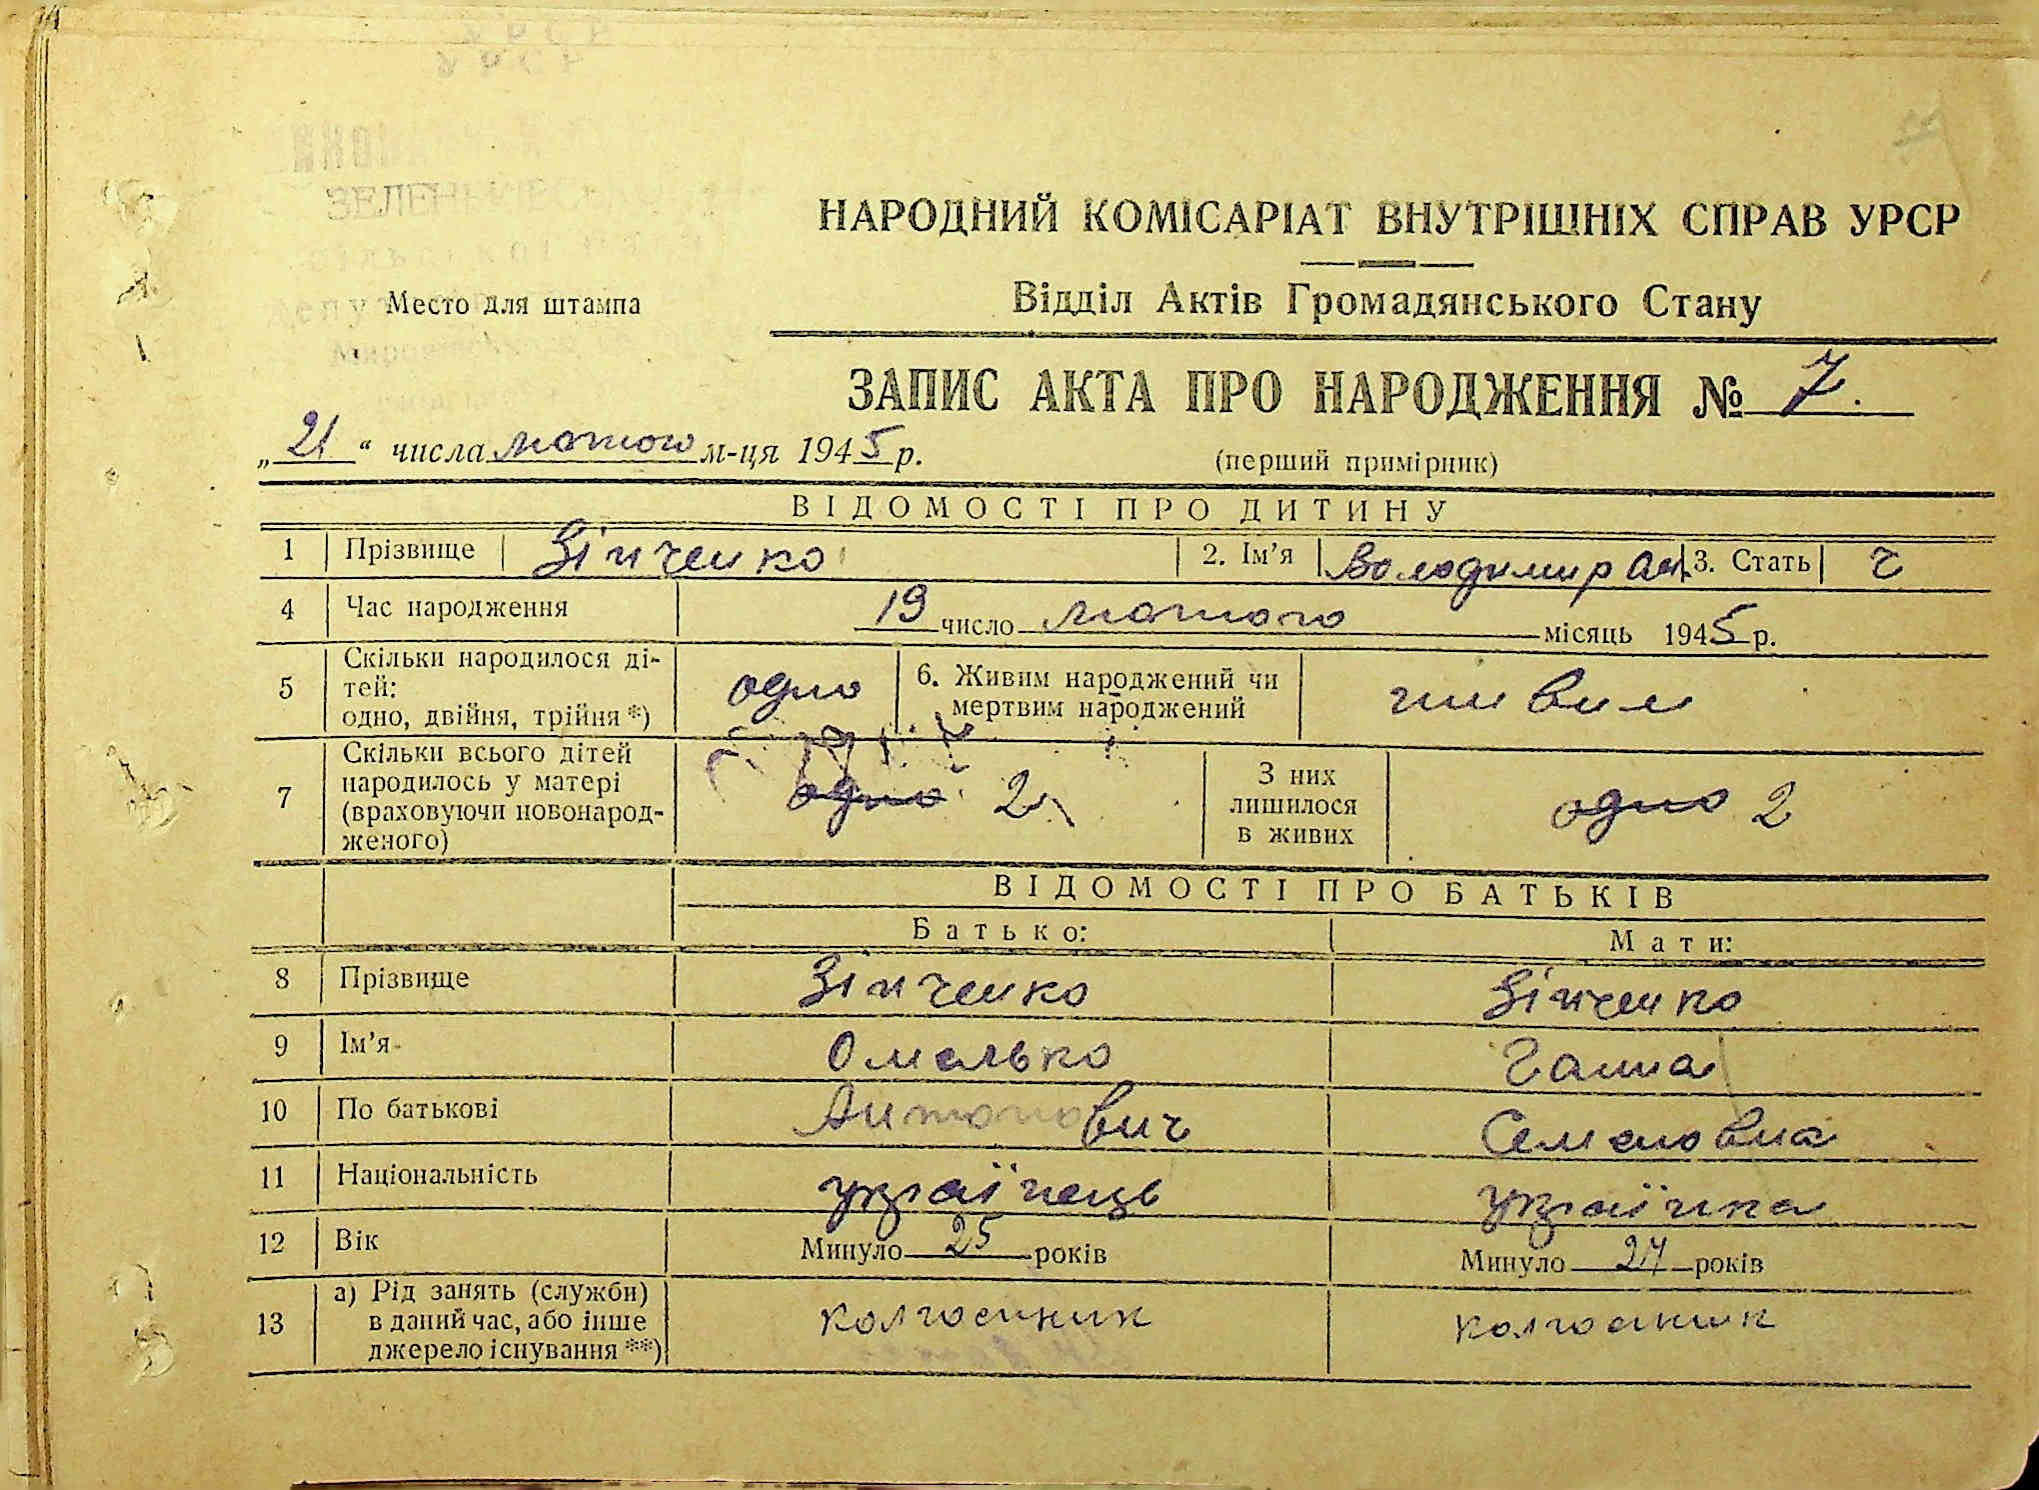 НАРОДНИЙ КОМІСАРІАТ ВНУТРІШНІХ СПРАВ УРСР
Место для штампа
Відділ Актів Громадянського Стану
ЗАПИС АКТА ПРО НАРОДЖЕННЯ № 7.
„21“ числа лютого м-ця 1945 р.
(перший примірник)
ВІДОМОСТІ ПРО ДИТИНУ
1 Прізвище Зінченко 2. Ім’я Володимир Ом. 3. Стать ч
4 Час народження 19 число лютого місяць 1945 р.
5 Скільки народилося ді-
тей:
одно, двійня, трійня *) одно 6. Живим народжений чи
мертвим народжений живим
7 Скільки всього дітей
народилось у матері
(враховуючи новонарод-
женого) одно 2 З них
лишилося
в живих одно 2
ВІДОМОСТІ ПРО БАТЬКІВ
Батько: Мати:
8 Прізвище Зінченко Зінченко
9 Ім’я Омелько Ганна
10 По батькові Антонович Семеновна
11 Національність українець українка
12 Вік Минуло 25 років Минуло 27 років
13 а) Рід занять (служби)
в даний час, або інше
джерело існування **) колгоспник колгоспник